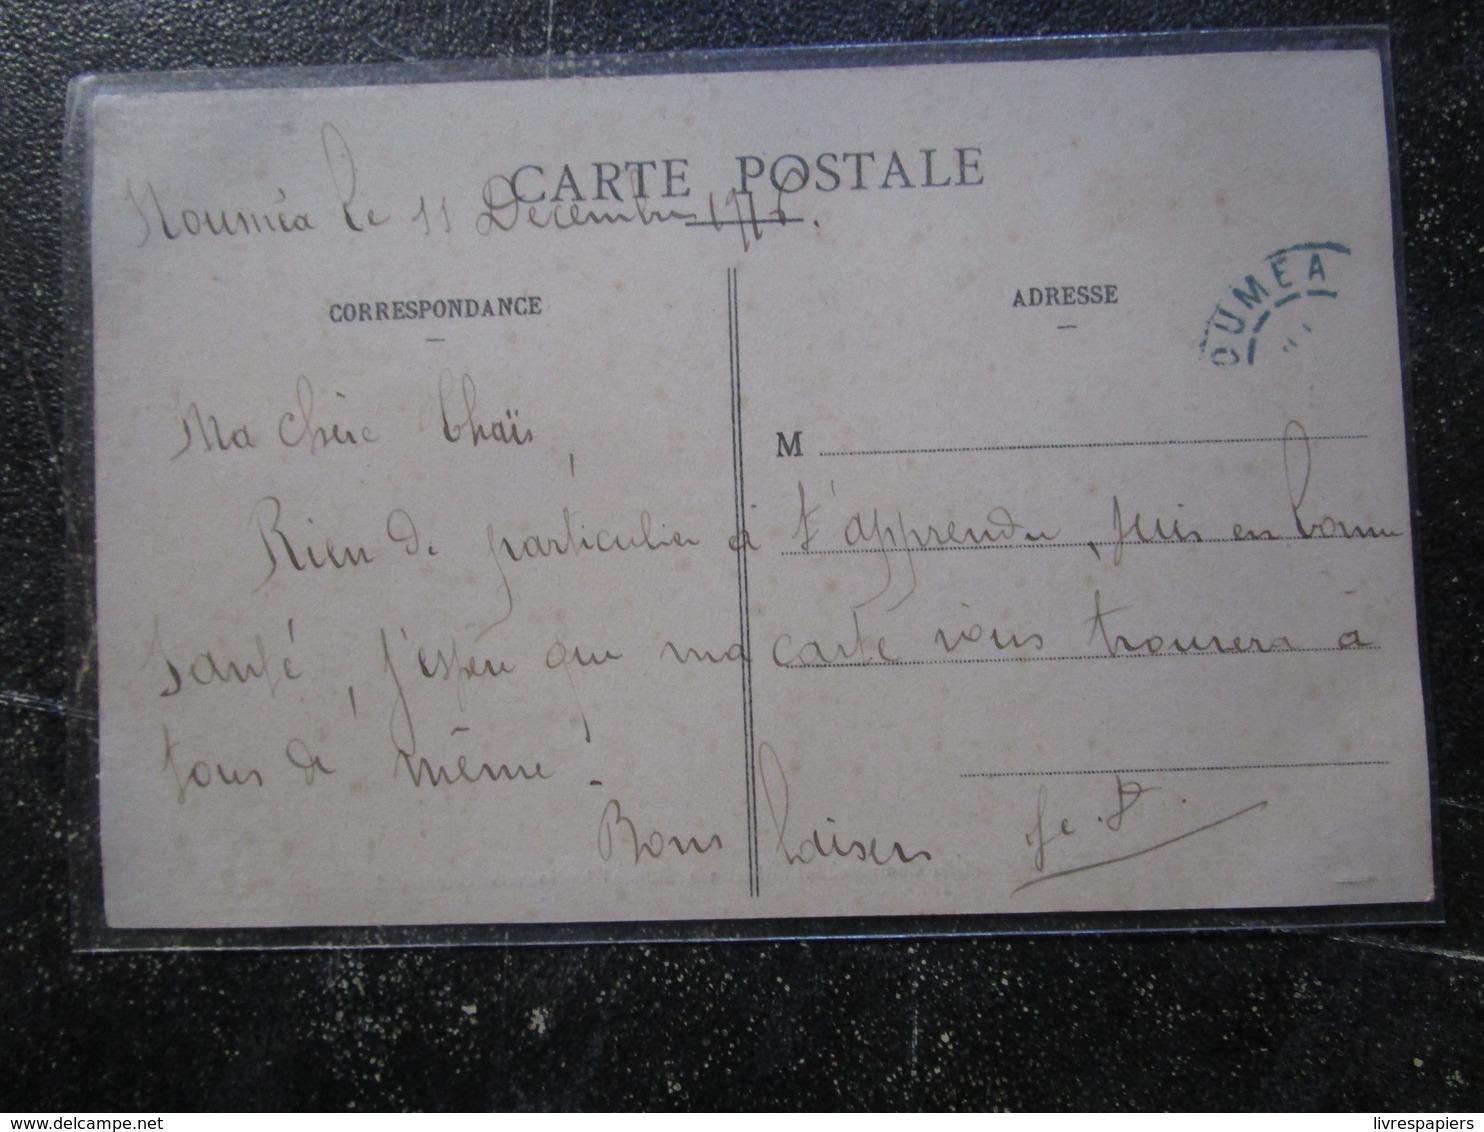 CARTE POSTALE
Nouméa le 11 Decembre
CORRESPONDANCE
ADRESSE
OUMEA
Ma chère Thaïs,
M
Rien de particulier à t'apprendre, suis en bonne
santé, j'espère que ma carte vous trouvera à
tous de même.
Bons baisers
livrespapiers